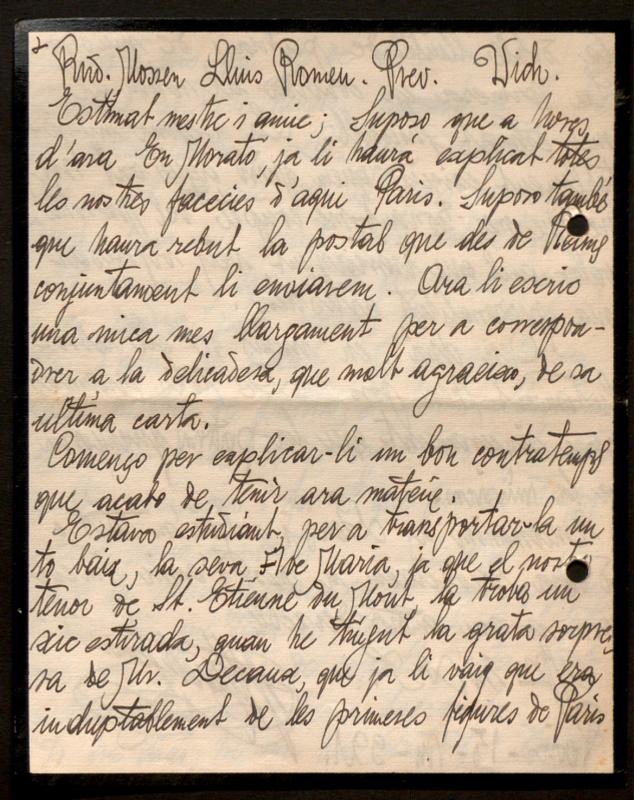 Rnd. Mossen Lluis Romeu. Prev. Vich.
Estimat mestre i amic; Suposo que a hores
d'ara En Morató, ja li haurá explicat totes
les nostres facecies d'aqui Paris. Suposo també
que haura rebut la postal que des de Reims
conjuntament li enviarem. Ara li escric
una mica mes llargament per a correspon-
drer a la delicadesa, que molt agraeixo, de sa
ultima carta.
Començo per explicar-li un bon contratemps
que acabo de tenir ara mateix.
Estava estudiant, per a transportar-la un
to baix, la seva Ave Maria, ja que el nostre
tenor de St. Etienne du Mont, la troba un
xic estirada, quan he tingut la grata sorpre-
sa de Mr. Decaux, que ja li vaig que era
induptablement de les primeres figures de Paris